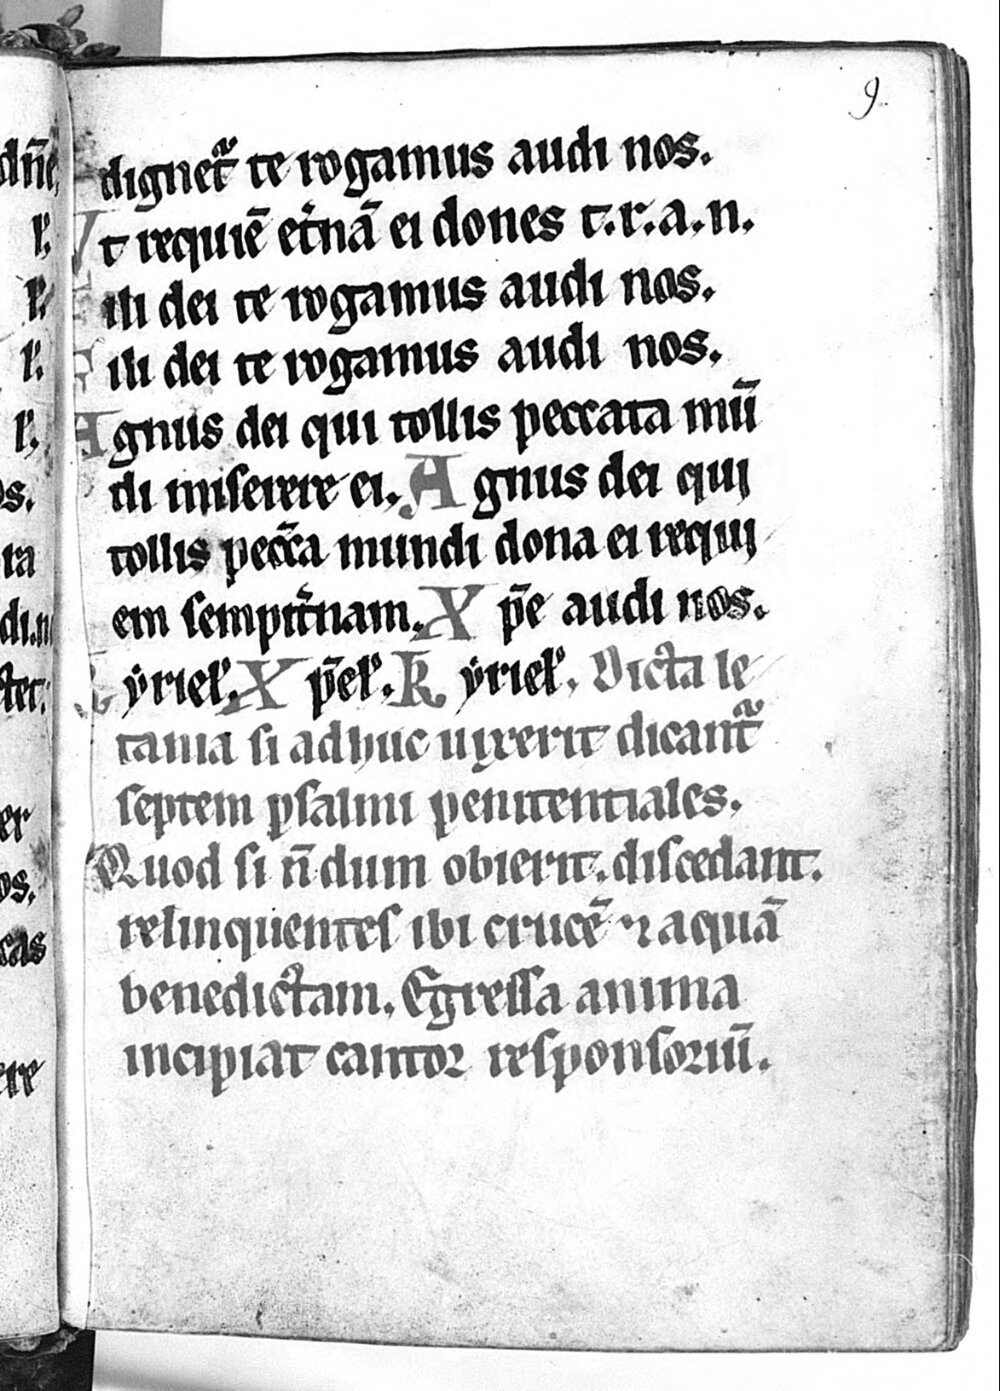 9
dignet᷑ te rogamus audi nos.
Vt requiē et̉nā ei dones t.r.a.n.
Fili dei te rogamus audi nos.
Fili dei te rogamus audi nos.
Agnus dei qui tollis peccata mū
di miserere ei. Agnus dei qui
tollis pecc̄a mundi dona ei requi
em sempit̉nam. Xp̄e audi nos.
Kyriel̉. Xp̄el̉. Kyriel̉. Dicta le
tania si adhuc uixerit dicant᷑
septem psalmi penitentiales.
Quod si n̄dum obierit. discedant.
relinquentes ibi crucē ⁊ aquā
benedictam. Egressa anima
incipiat cantor responsoriū.